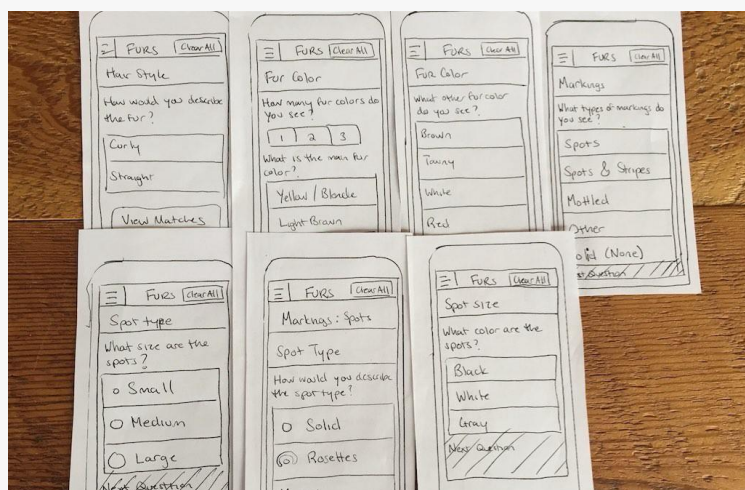 FURS Clear All
Hair Style
How would you describe
the fur?
Curly
Straight
View Matches
FURS Clear All
Fur Color
How many fur colors do
you see?
1 2 3
What is the main fur
color?
Yellow / Blonde
Light Brown
FURS Clear All
Fur Color
What other fur color
do you see?
Brown
Tawny
White
Red
FURS Clear All
Markings
What types of markings do
you see?
Spots
Spots & Stripes
Mottled
Other
(None)
Question
FURS Clear All
Spot type
What size are the
spots?
Small
Medium
Large
Next Question
FURS Clear All
Markings: Spots
Spot Type
How would you describe
the spot type?
Solid
Rosettes
FURS Clear All
Spot size
What color are the
spots?
Black
White
Gray
Next Question